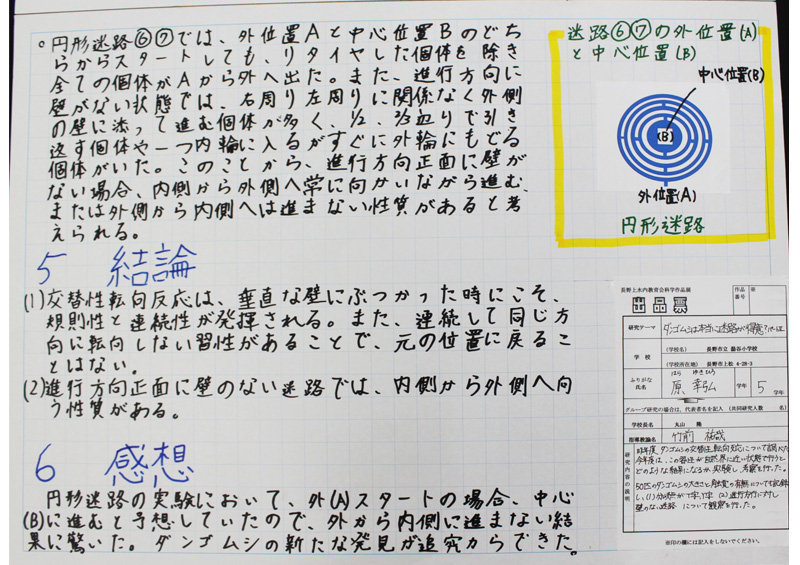 。円形迷路⑥⑦では、外位置Aと中心位置Bのどち
らからスタートしても、リタイヤした個体を除き
全ての個体がAから外へ出た。また、進行方向に
壁がない状態では、右周り左周りに関係なく外側
の壁に添って進む個体が多く、1/2、2/3辺りで引き
返す個体や一つ内輪に入るがすぐに外輪にもどる
個体がいた。このことから、進行方向正面に壁が
ない場合、内側から外側へ常に向かいながら進む、
または外側から内側へは進まない性質があると考
えられる。
5 結論
(1)交替性転向反応は、垂直な壁にぶつかった時にこそ、
規則性と連続性が発揮される。また、連続して同じ方
向に転向しない習性があることで、元の位置に戻るこ
とはない。
(2)進行方向正面に壁のない迷路では、内側から外側へ向
う性質がある。
6 感想
円形迷路の実験において、外(A)スタートの場合、中心
(B)に進むと予想していたので、外から内側に進まない結
果に驚いた。ダンゴムシの新たな発見が追究からできた。
迷路⑥⑦の外位置(A)
と中心位置(B)
中心位置(B)
(B)
外位置(A)
円形迷路
長野上水内教育会科学作品展
出品票
作品番号
研究テーマ
ダンゴムシは本当に迷路が得意?
学校
(学校名) 長野市立 小学校
(学校所在地) 長野市上松 4-28-3
ふりがな
氏名
はら ゆきひろ
原 幸弘
学年
5
学年
グループ研究の場合は、代表者名を記入 (共同研究人数 名)
学校長名
丸山 隆
指導教諭名
竹前 祐哉
研究内容の説明
昨年度、ダンゴムシの交替性転向反応について調べた。
今年度は、この習性が自然界に近い状態で行うと
どのような結果になるか、実験し、考察を行った。
50匹のダンゴムシの大きさと
について観察を行った。
※印の欄には記入をしないでください。